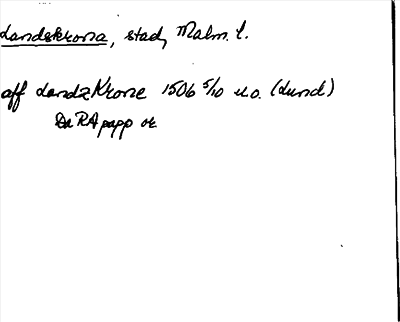 Landskrona, stad, Malm. l.
aff LandzKrone 1506 5/10 u.o. (Lund)
Da RA papp or.